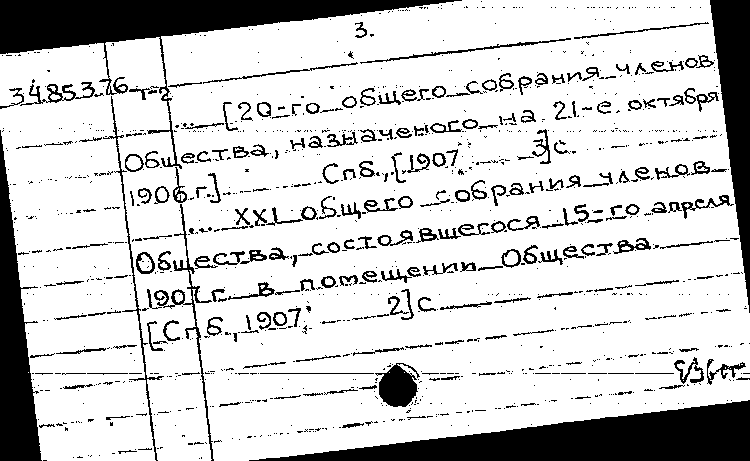 3.
3485376 т-2
... [20-го общего собрания членов
Общества, назначеного на 21-е октября
1906 г.] Спб., [1907 3]с.
... XXI общего собрания членов
Общества, состоявшегося 15-го апреля
1907 г. в помещении Общества.
[Спб., 1907, 2]с